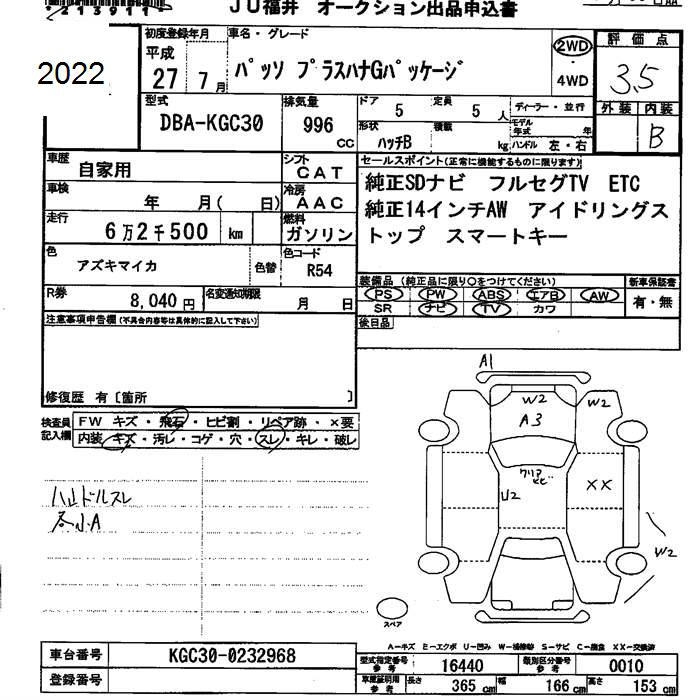 *213911*
JU福井 オークション出品申込書
2022
初度登録年月
平成
27年 7月
車名・グレード
パッソ プラスハナGパッケージ
2WD
・
4WD
評価点
3.5
型式
DBA-KGC30
排気量
996
CC
ドア 5
定員 5人
形状
ハッチB
積載
kg
ディーラー・並行
モデル年式 年
ハンドル 左・右
外装 内装
B
車歴
自家用
シフト
CAT
車検
年 月( 日)
冷房
AAC
走行
6万2千500 km
燃料
ガソリン
色
アズキマイカ
色替
色コード
R54
R券
8,040円
名変通知期限
月 日
セールスポイント(正常に機能するものに限ります)
純正SDナビ フルセグTV ETC
純正14インチAW アイドリングス
トップ スマートキー
装備品 (純正品に限り○をつけてください)
PS PW ABS エアB AW
SR ナビ TV カワ
新車保証書
有・無
後日品
注意事項申告欄(不具合内容等は具体的に記入して下さい)
修復歴 有〔箇所 〕
検査員
記入欄
FW キズ・飛石・ヒビ割・リペア跡・×要
内装 キズ・汚レ・コゲ・穴・スレ・キレ・破レ
ハンドルスレ
各小A
A1
W2
W2
A3
クリア
ヒビ
U2
XX
W2
スペア
A-キズ E-エクボ U-凹み W-補修跡 S-サビ C-腐食 XX-交換済
車台番号 KGC30-0232968
登録番号
型式指定番号
参考
16440
類別区分番号
参考
0010
車庫証明用
参考
長さ 365 cm
幅 166 cm
高さ 153 cm